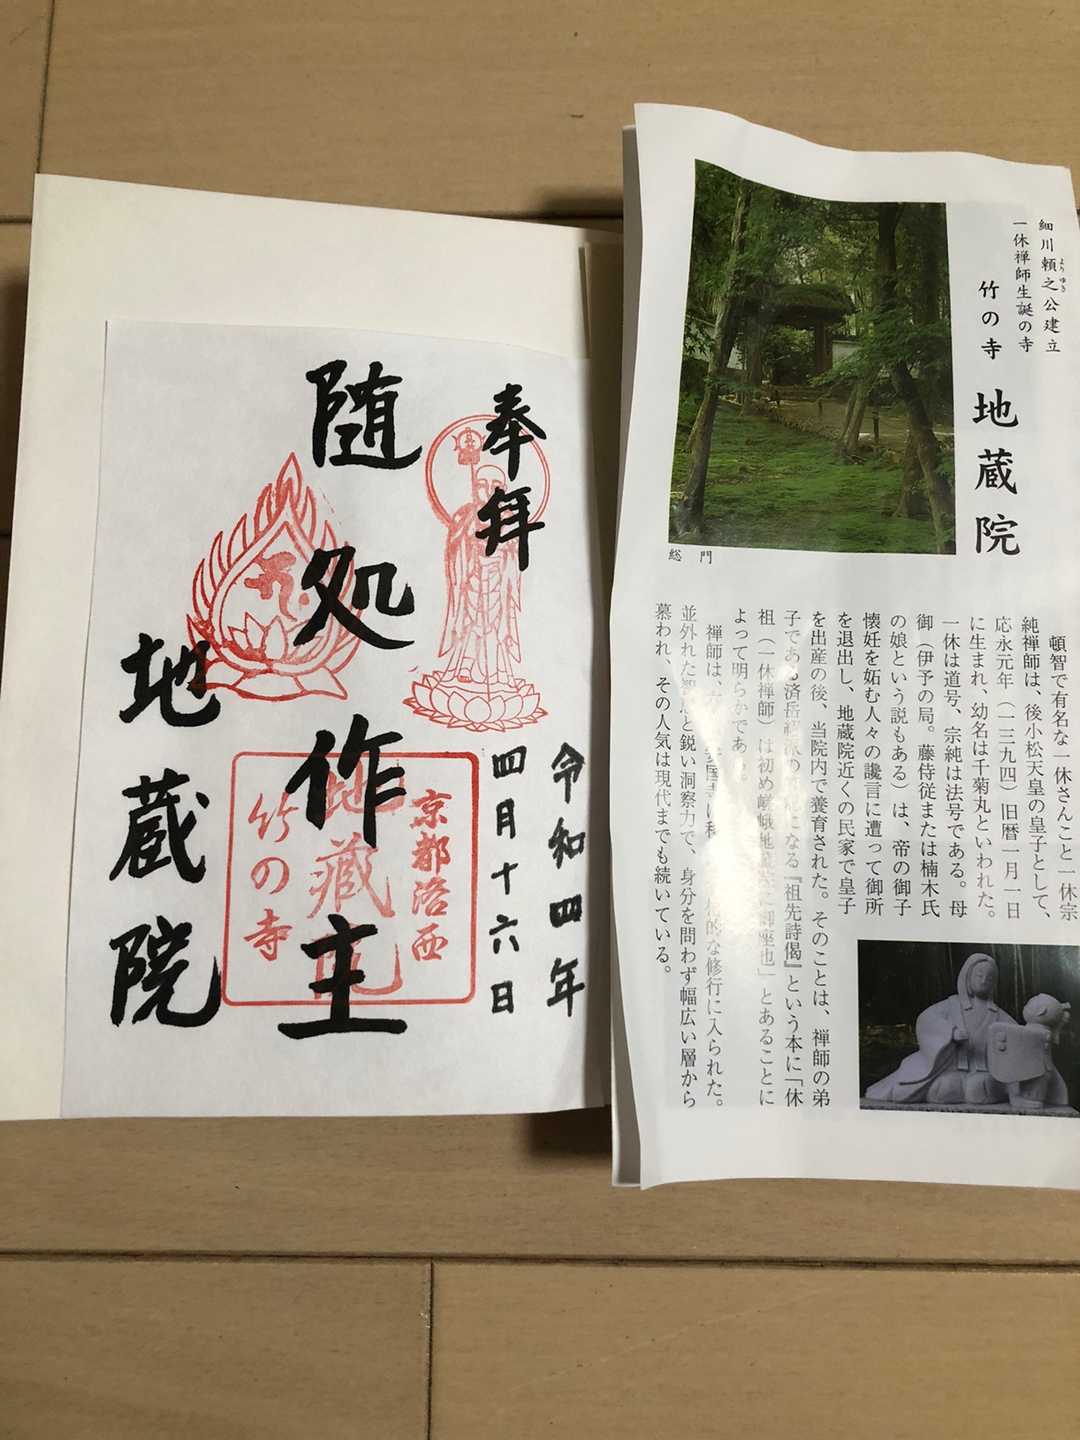 奉拝
随処作主
地蔵院
令和四年
四月十六日
京都洛西
地藏院
竹の寺
細川頼之公建立
よりゆき
一休禅師生誕の寺
竹の寺 地蔵院
総門
頓智で有名な一休さんこと一休宗
純禅師は、後小松天皇の皇子として、
応永元年(一三九四)旧暦一月一日
に生まれ、幼名は千菊丸といわれた。
一休は道号、宗純は法号である。母
御(伊予の局。藤侍従または楠木氏
の娘という説もある)は、帝の御子
懐妊を妬む人々の讒言に遭って御所
を退出し、地蔵院近くの民家で皇子
を出産の後、当院内で養育された。そのことは、禅師の弟
子である済岳 になる『祖先詩偈』という本に「休
祖(一休禅師)は初め嵯峨地 御座也」とあることに
よって明らかである。
禅師は、 的な修行に入られた。
並外れた と鋭い洞察力で、身分を問わず幅広い層から
慕われ、その人気は現代までも続いている。